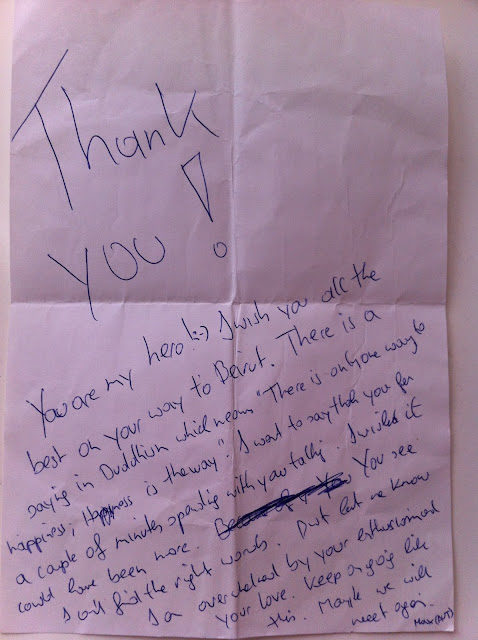 Thank
YOU!
You are my hero! :-) I wish you all the
best on your way to Beirut. There is a
saying in Buddhism which means "There is only one way to
happiness; Happiness is the way". I want to say thank you for
a couple of minutes spending with you talking. I wished it
could have been more. You see
I can't find the right words. Just let me know
I am overwhelmed by your enthusiasm and
your love. Keep on going like
this. Maybe we will
meet again.